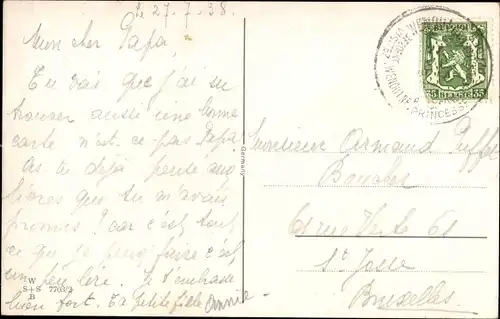 le 27.7.38.
Mon cher Papa,
Tu vois que j'ai su
trouver aussi une bonne
carte n'est-ce pas Papa
As tu déjà pensé aux
livres que tu m'avais
promis! car c'est tout
ce que je peux faire c'est
un peu lire. Je t'embrasse
bien fort. Ta petite fille Annie
W
S+S 7703/2
B
Germany
BELGIQUE
BELGIË
35 35
PRINCESSE
Monsieur Armand
Bouches
61 rue Verte 61
St Josse
Bruxelles.